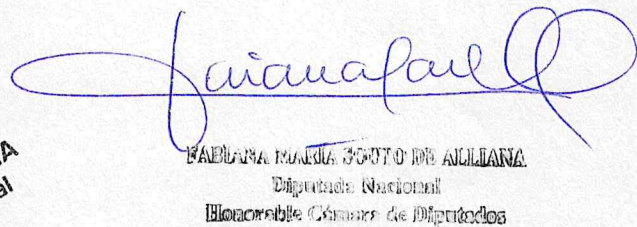 FABIANA MARIA SOUTO DE ALLIANA
Diputada Nacional
Honorable Cámara de Diputados